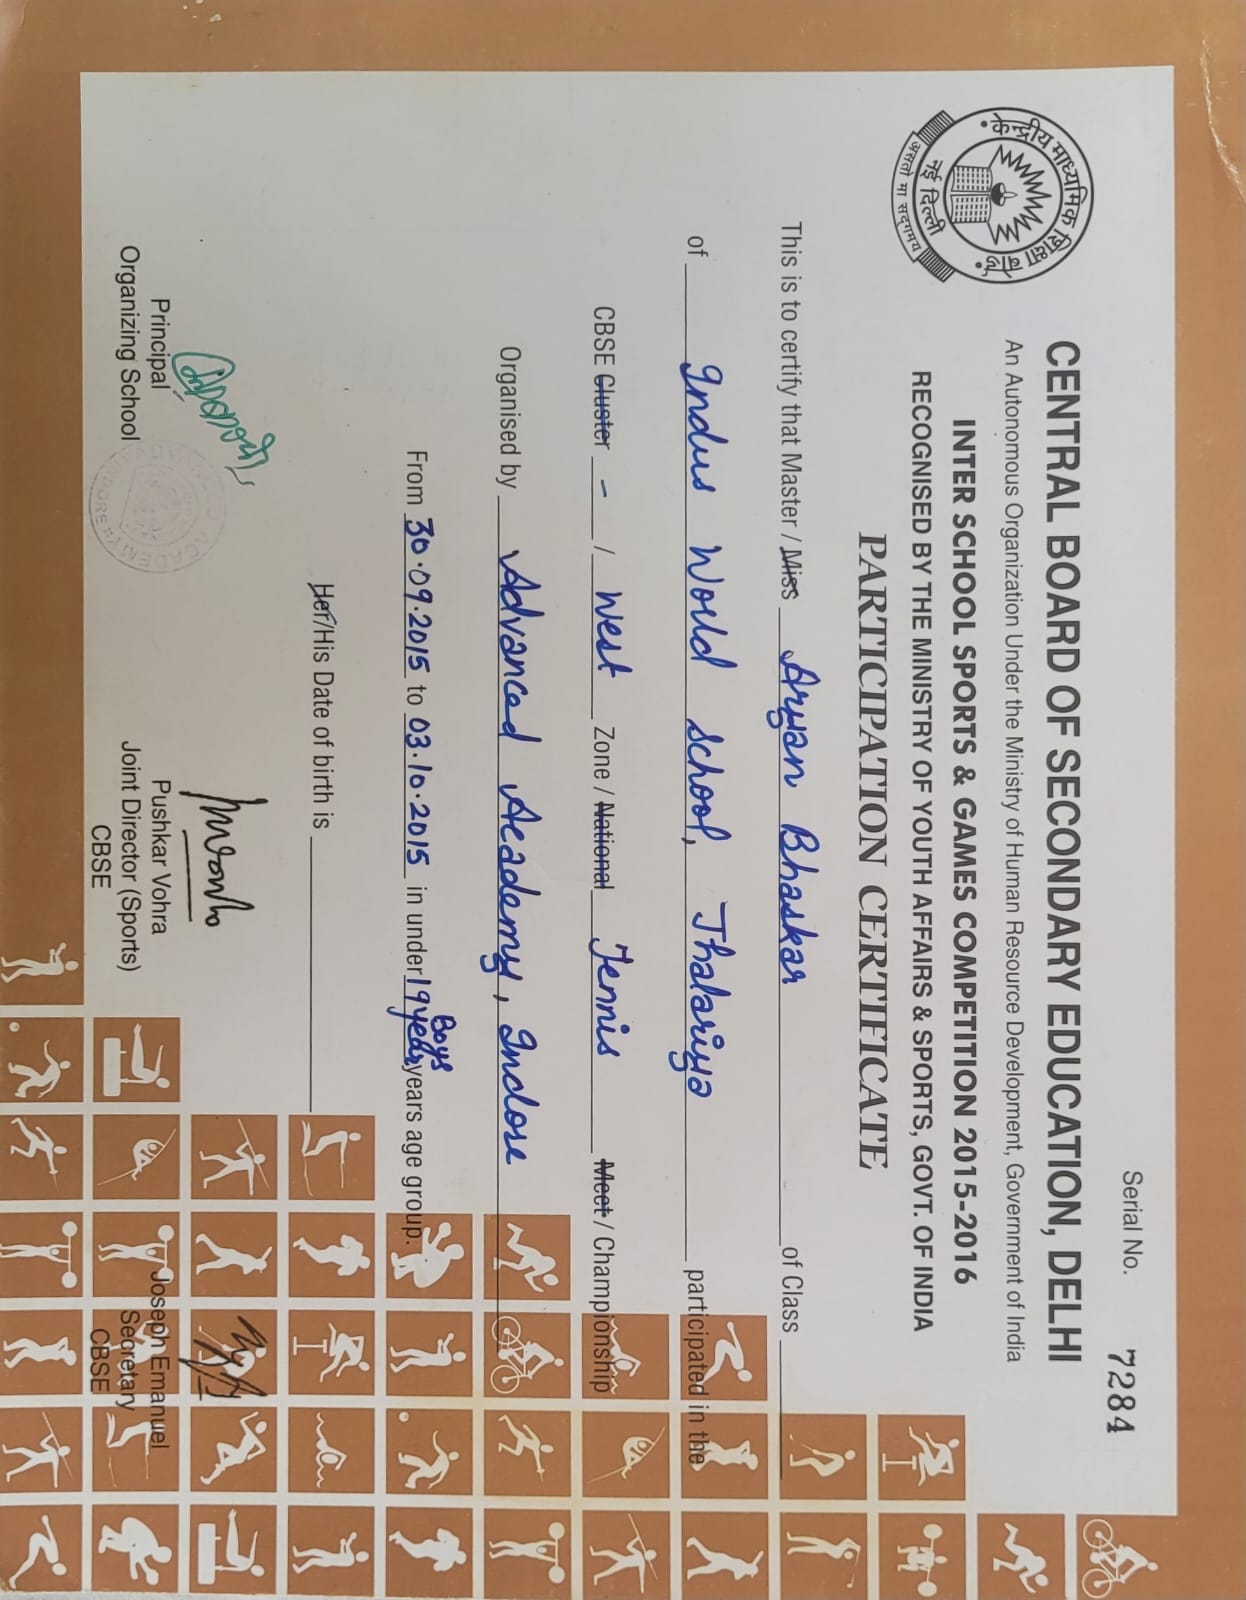 Serial No. 7284
केन्द्रीय माध्यमिक शिक्षा बोर्ड
नई दिल्ली
असतो मा सदगमय
CENTRAL BOARD OF SECONDARY EDUCATION, DELHI
An Autonomous Organization Under the Ministry of Human Resource Development, Government of India
INTER SCHOOL SPORTS & GAMES COMPETITION 2015-2016
RECOGNISED BY THE MINISTRY OF YOUTH AFFAIRS & SPORTS, GOVT. OF INDIA
PARTICIPATION CERTIFICATE
This is to certify that Master / Miss Aryan Bhaskar of Class
of Indus World School, Thalariya participated in the
CBSE Cluster - / West Zone / National Tennis Meet / Championship
Organised by Advanced Academy, Indore
Boys
From 30.09.2015 to 03.10.2015 in under 19 year years age group.
Her/His Date of birth is
Principal
Organizing School
ADVANCED ACADEMY
INDORE
Pushkar Vohra
Joint Director (Sports)
CBSE
Joseph Emanuel
Secretary
CBSE